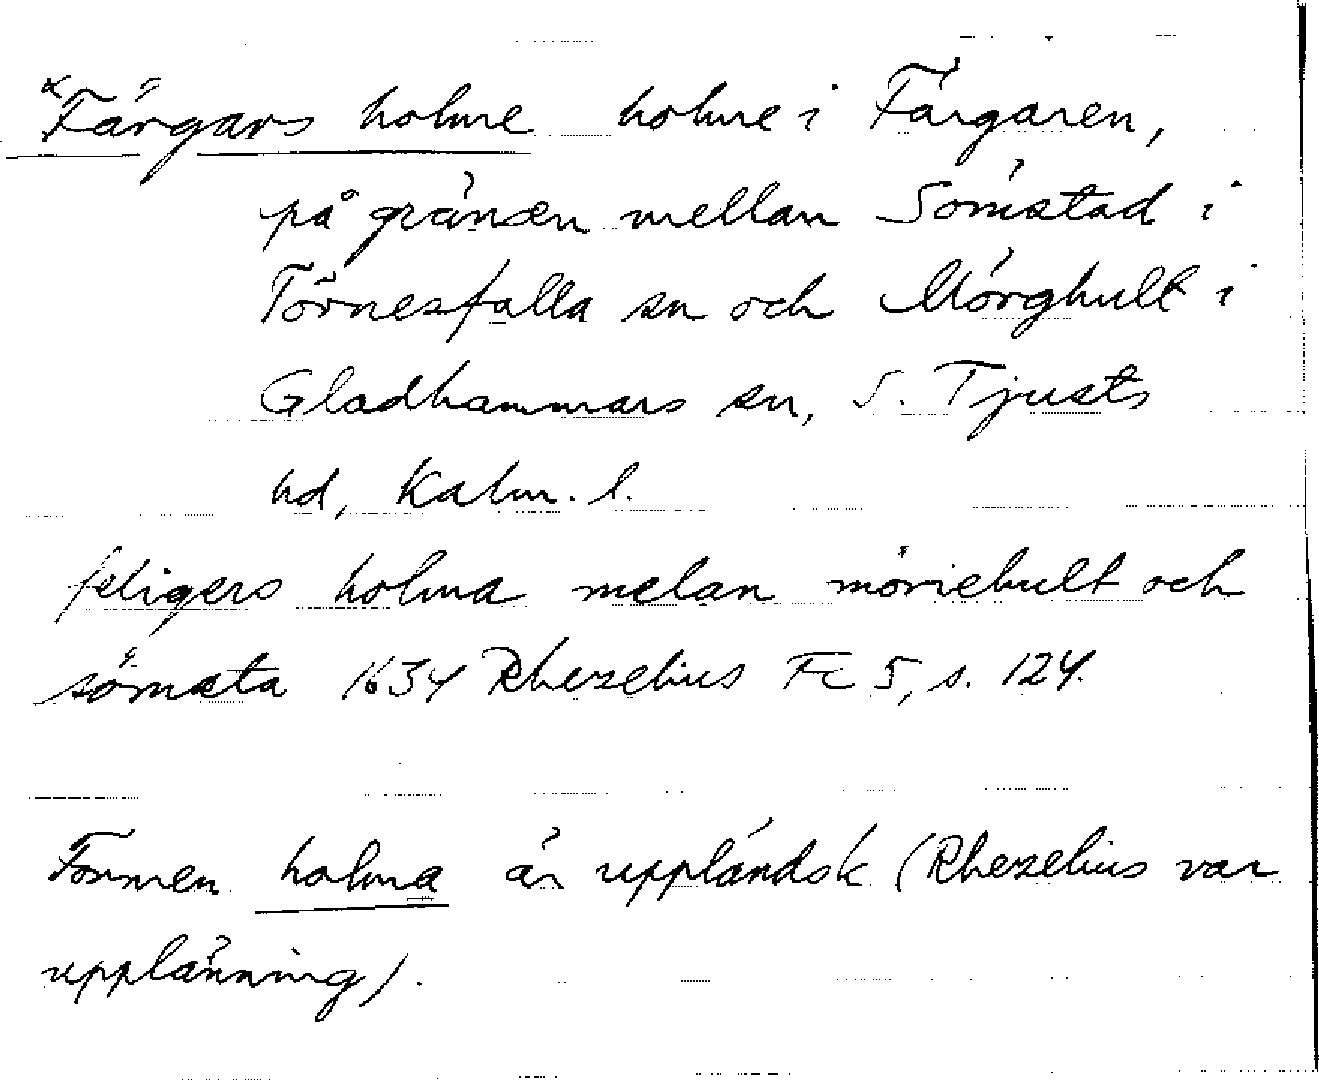 *Färgars holme holme i Färgaren,
på gränsen mellan Sömstad i
Törnesfalla sn och Mörghult i
Gladhammars sn, S. Tjusts
hd, Kalm. l.
feligers holma melan möriehult och
sömsta 1634 Rhezelius Fc 5, s. 124.
Formen holma är uppländsk (Rhezelius var
upplänning).